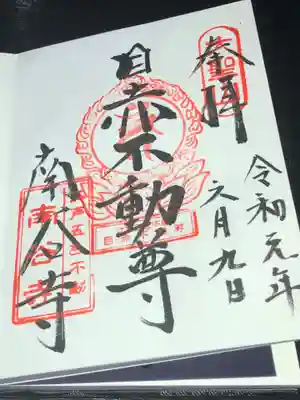 奉拝
令和元年
六月九日
目赤不動尊
南谷寺
江戸五色不動
南谷寺